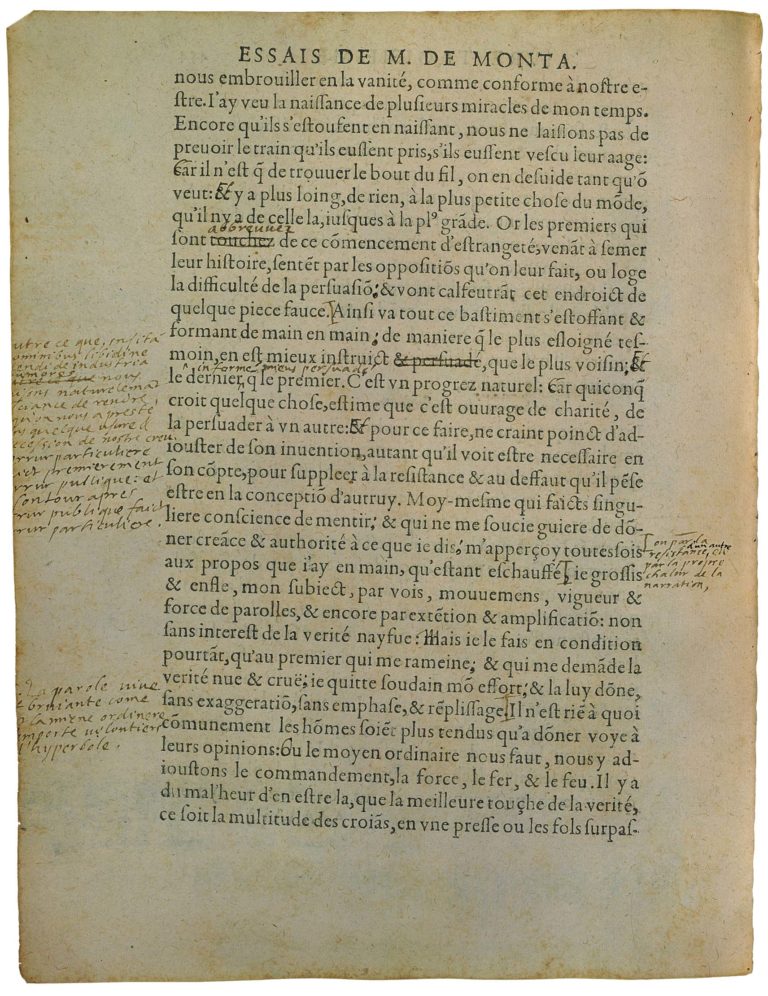 ESSAIS DE M. DE MONTA.
nous embrouiller en la vanité, comme conforme à nostre e-
ſtre. I'ay veu la naiſſance de pluſieurs miracles de mon temps.
Encore qu'ils s'eſtoufent en naiſſant, nous ne laiſſons pas de
preuoir le train qu'ils euſſent pris, s'ils euſſent veſcu leur aage:
Car il n'eſt q̃ de trouuer le bout du fil, on en deſuide tant qu'õ
veut: Et y a plus loing, de rien, à la plus petite choſe du mõde,
qu'il ny a de celle la, iuſques à la plꝰ grãde. Or les premiers qui
abbreuuez
ſont touchez de ce cõmencement d'eſtrangeté, venãt à ſemer
leur hiſtoire, ſentẽt par les oppoſitiõs qu'on leur fait, ou loge
la difficulté de la perſuaſiõ, & vont calfeutrãt cet endroict de
quelque piece fauce. Ainſi va tout ce baſtiment s'eſtoffant &
formant de main en main; de maniere q̃ le plus eſloigné teſ-
moin, en eſt mieux inſtruict & perſuadé, que le plus voiſin; Et
informé mieus persuadé
le dernier, q̃ le premier. C'eſt vn progrez naturel: Car quiconq̃
croit quelque choſe, eſtime que c'eſt ouurage de charité, de
la perſuader à vn autre: Et pour ce faire, ne craint poinct d'ad-
iouſter de ſon inuention, autant qu'il voit eſtre neceſſaire en
ſon cõpte, pour ſuppleer à la reſiſtance & au deffaut qu'il pẽſe
eſtre en la conceptiõ d'autruy. Moy-meſme qui faicts ſingu-
liere conſcience de mentir, & qui ne me ſoucie guiere de dõ-
ner creãce & authorité à ce que ie dis, m'apperçoy toutesfois
aux propos que i'ay en main, qu'eſtant eſchauffé, ie groſſis
& enfle, mon ſubiect, par vois, mouuemens, vigueur &
force de parolles, & encore par extẽtion & amplificatiõ: non
ſans intereſt de la verité nayfue: Mais ie le fais en condition
pourtãt, qu'au premier qui me rameine, & qui me demãde la
verité nue & cruë, ie quitte ſoudain mõ effort, & la luy dõne,
ſans exaggeratiõ, ſans emphaſe, & rẽpliſſage. Il n'eſt riẽ à quoi
cõmunement les hõmes ſoiẽt plus tendus qu'a dõner voye à
leurs opinions: Ou le moyen ordinaire nous faut, nous y ad-
iouſtons le commandement, la force, le fer, & le feu. Il y a
du mal'heur d'en eſtre la, que la meilleure touche de la verité,
ce ſoit la multitude des croiãs, en vne preſſe ou les fols ſurpaſ-
utre ce que, insita
ominibus libidine
lendi de industria
umores
nous
sons naturelemant
sciance de rendre
qu'on nous a presté
s quelque usure &
cession de nostre creu.
rrur particuliere
ict premierement
rrur publique: et
son tour apres
rrur publique faict
rrur particuliere.
ou par la
resistance d'un autre
par la propre
chalur de la
narration,
La parole vive
& bruïante come
la miene ordinere
mporte volontiers
l'hyperbole.